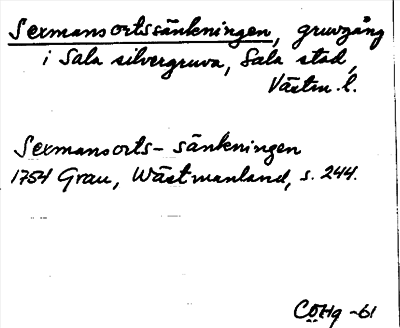 Sexmansortssänkningen, gruvgång
i Sala silvergruva, Sala stad,
Västm. l.
Sexmansorts-sänkningen
1754 Grau, Wästmanland, s. 244.
CÖHg -61